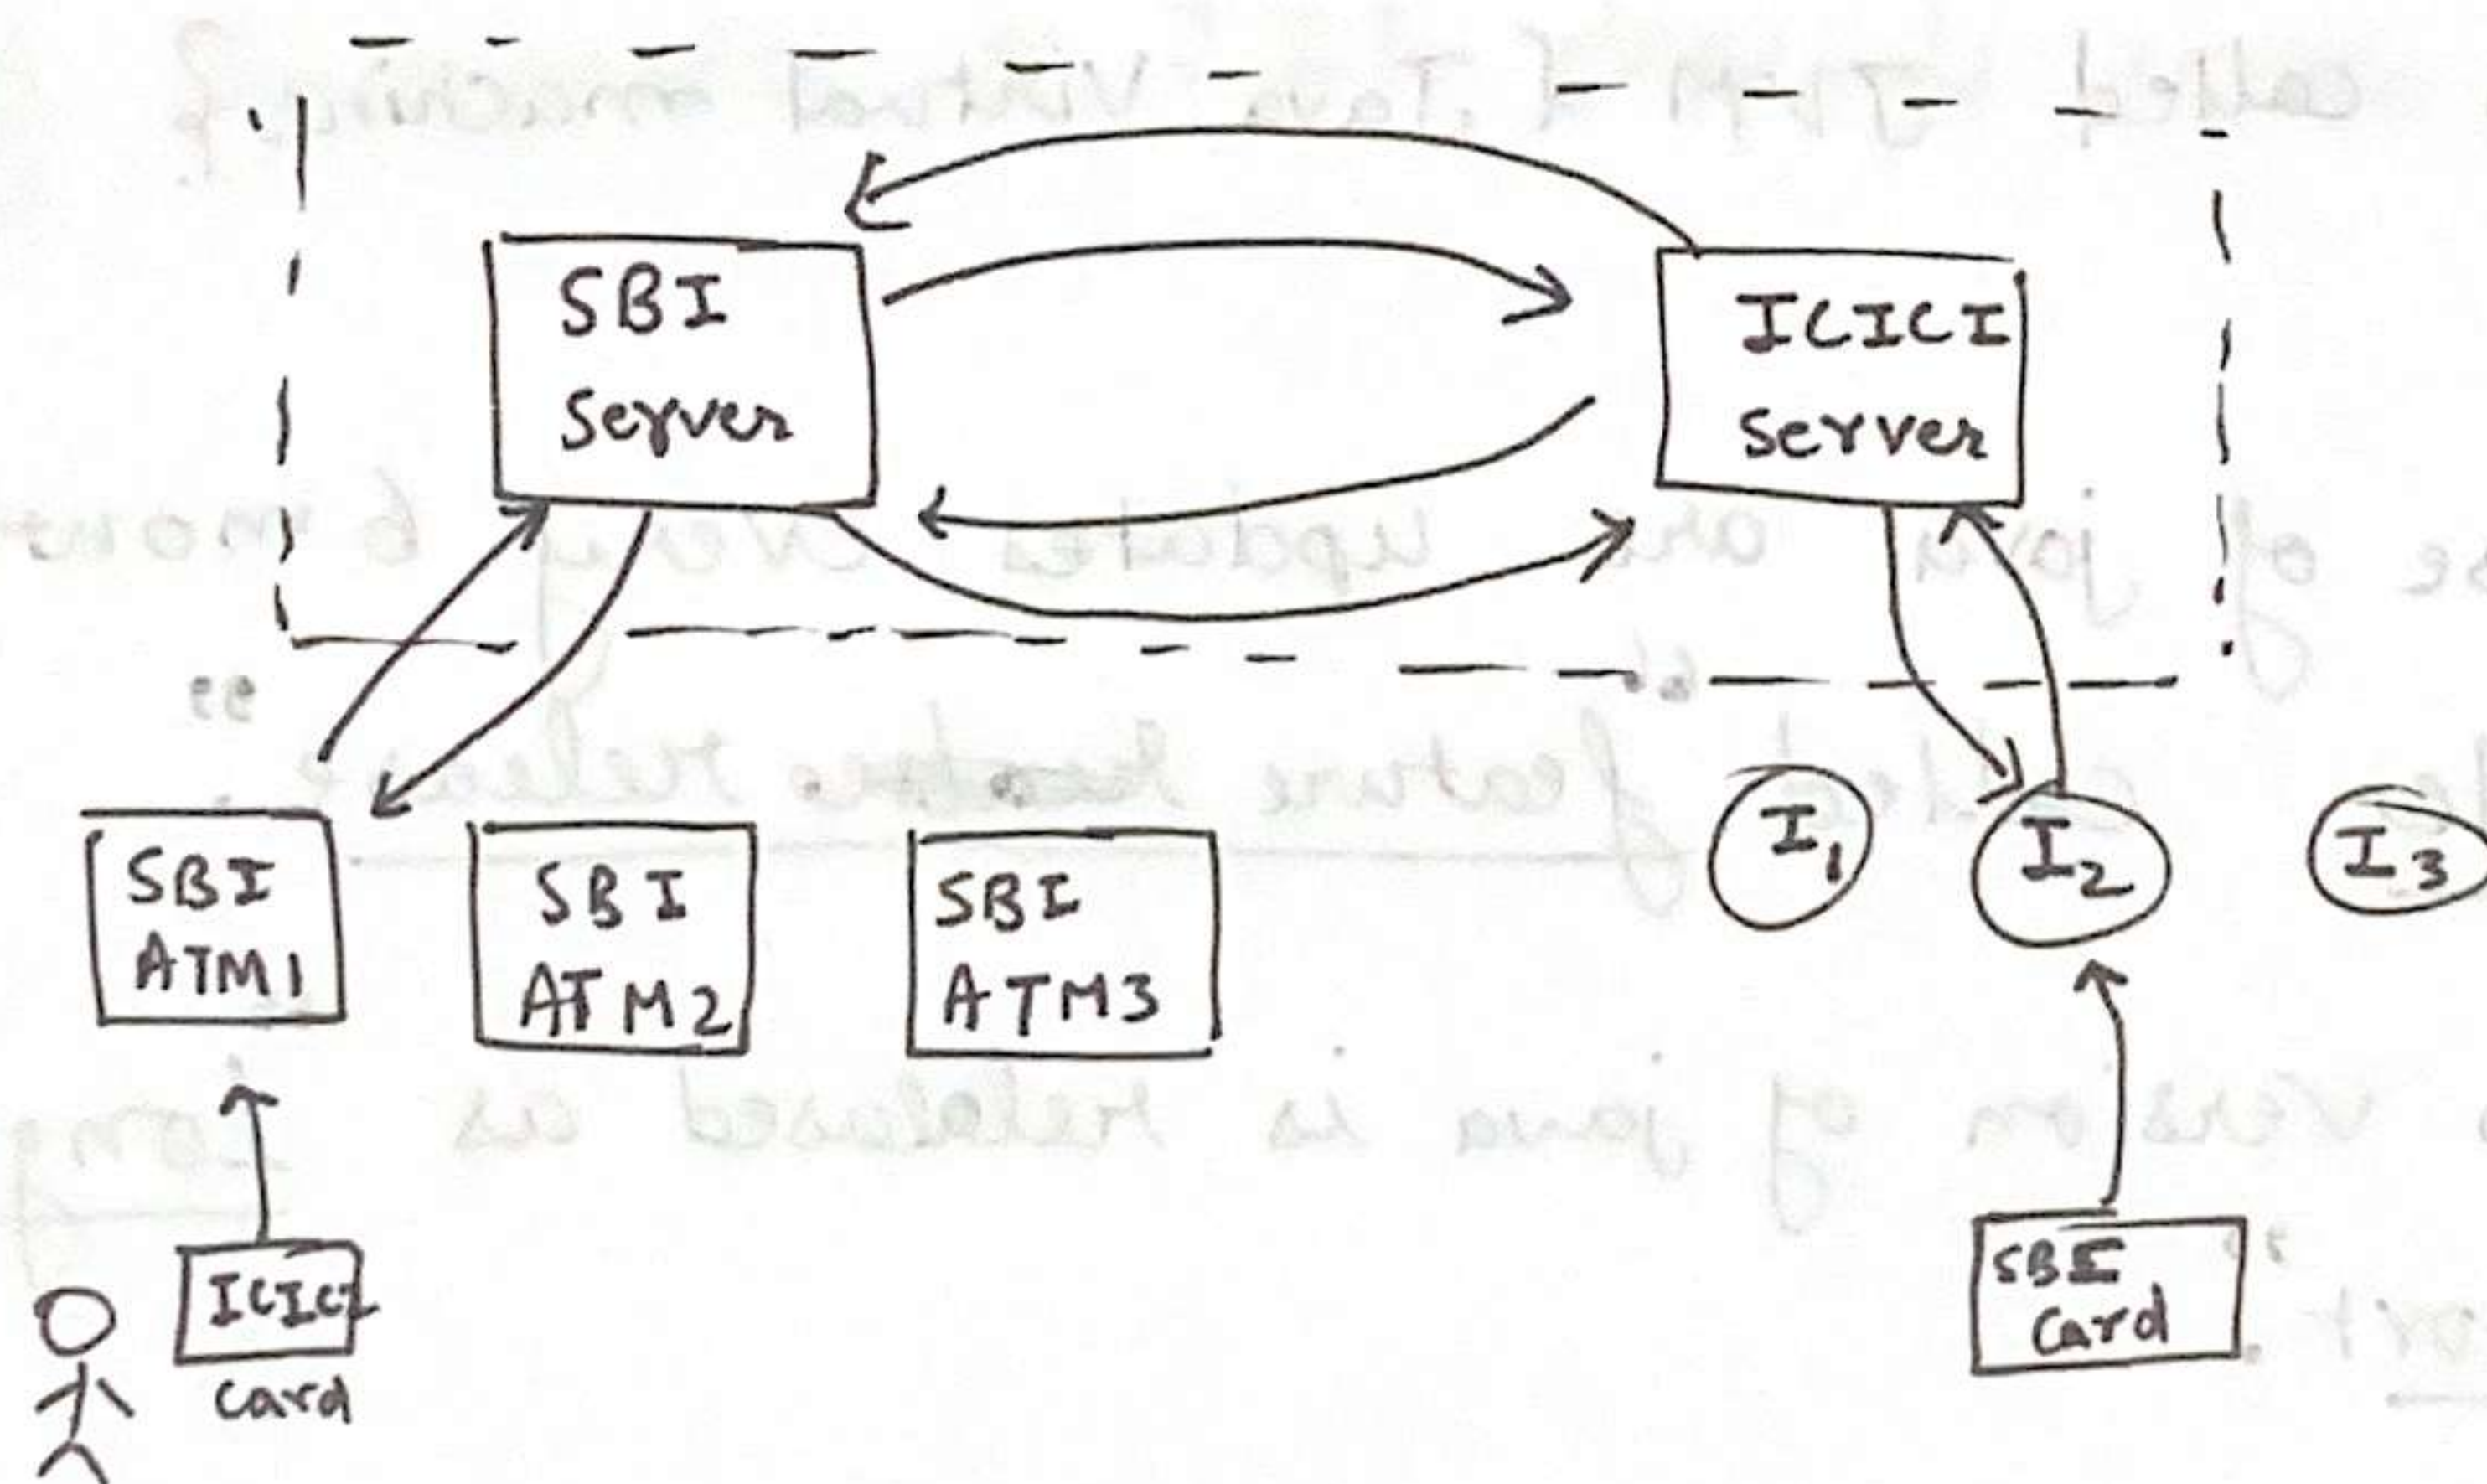 SBI
Server
ICICI
Server
SBI
ATM1
SBI
ATM2
SBI
ATM3
I1
I2
I3
ICICI
card
SBI
Card